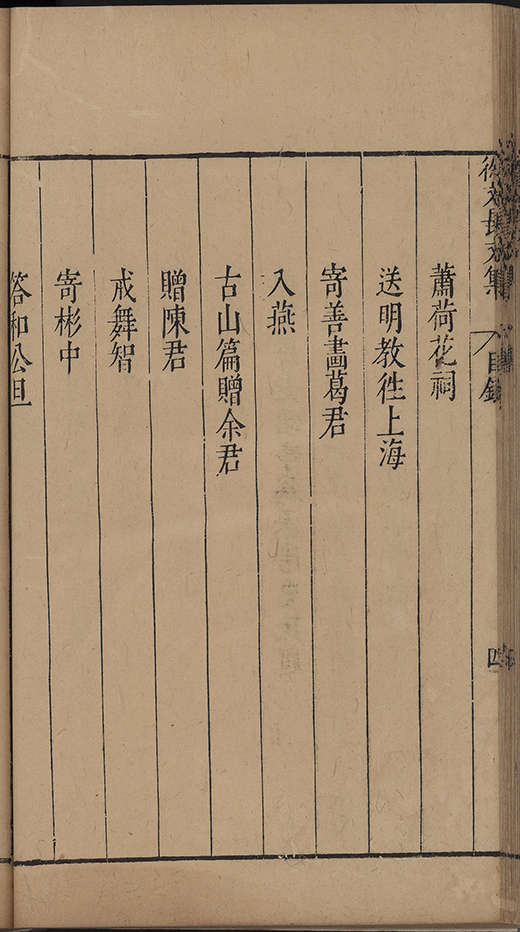 徐文長文集 目錄 四
蕭荷花祠
送明教徃上海
寄善畵葛君
入燕
古山篇贈余君
贈陳君
戒舞智
寄彬中
答和公旦